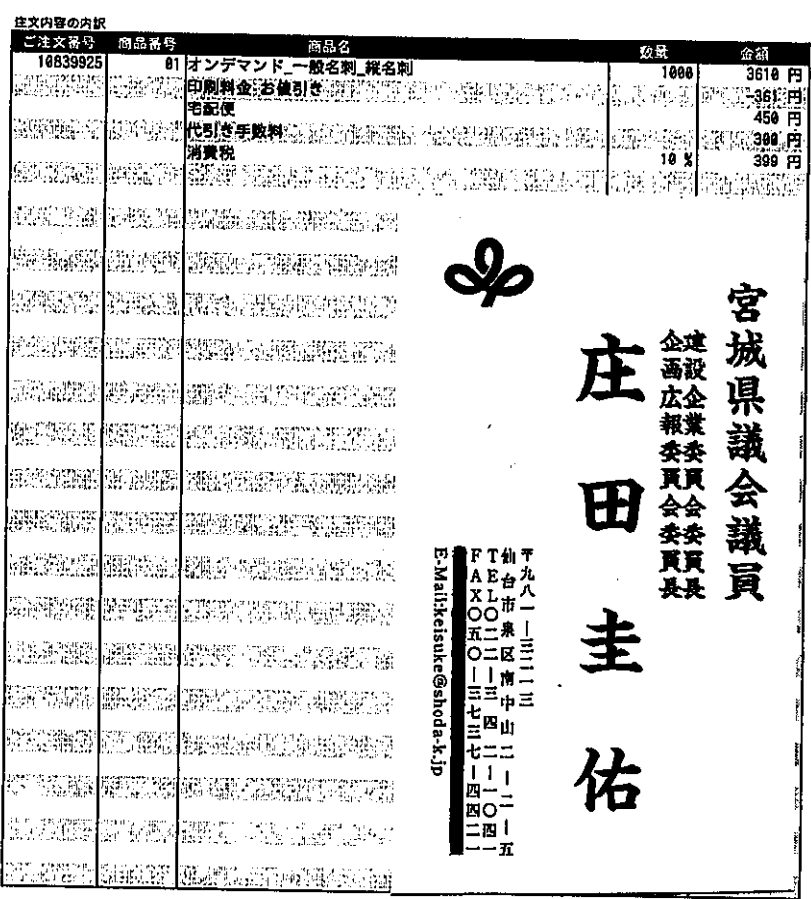 注文内容の内訳
ご注文番号 商品番号 商品名 数量 金額
10839925 01 オンデマンド_一般名刺_縦名刺 1000 3610 円
印刷料金_お値引き -361 円
宅配便 450 円
代引き手数料 300 円
消費税 10 % 399 円
宮城県議会議員
建設企業委員会委員長
企画広報委員会委員長
庄田圭佑
〒九八一―三二一三
仙台市泉区南中山二―二―五
TEL〇二二―三四二―一〇四一
FAX〇五〇―三七三七―四四二一
E-Mail:keisuke@shoda-k.jp